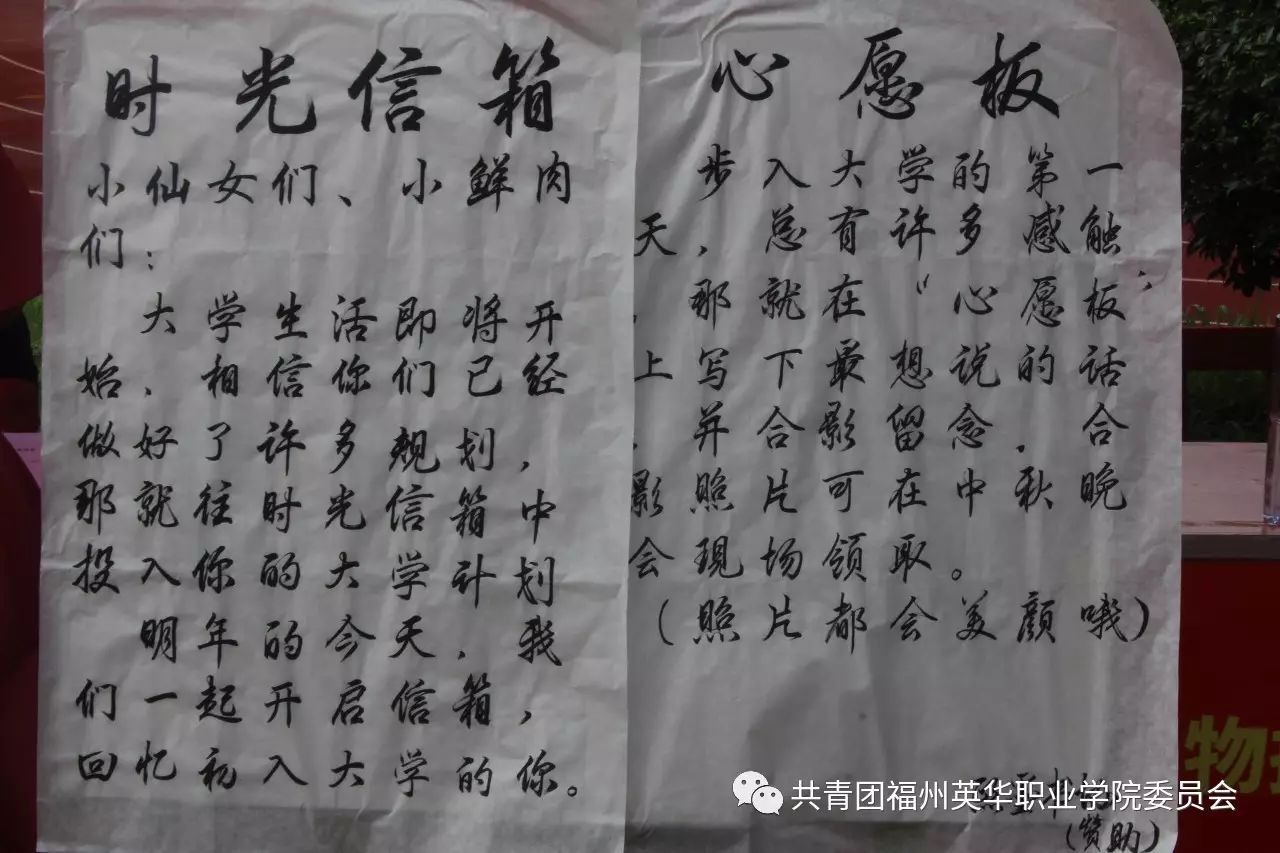 时光信箱
小仙女们、小鲜肉
们：
大学生活即将开
始，相信你们已经
做好了许多规划，
那就往时光信箱中
投入你的大学计划
明年的今天，我
们一起开启信箱，
回忆初入大学的你。
心愿板
步入大学的第一
天，总有许多感触
，那就在“心愿板”
上写下最想说的话
，并合影留念，合
影照片可在中秋晚
会现场领取。
（照片都会美颜哦）
（赞助）
共青团福州英华职业学院委员会
物